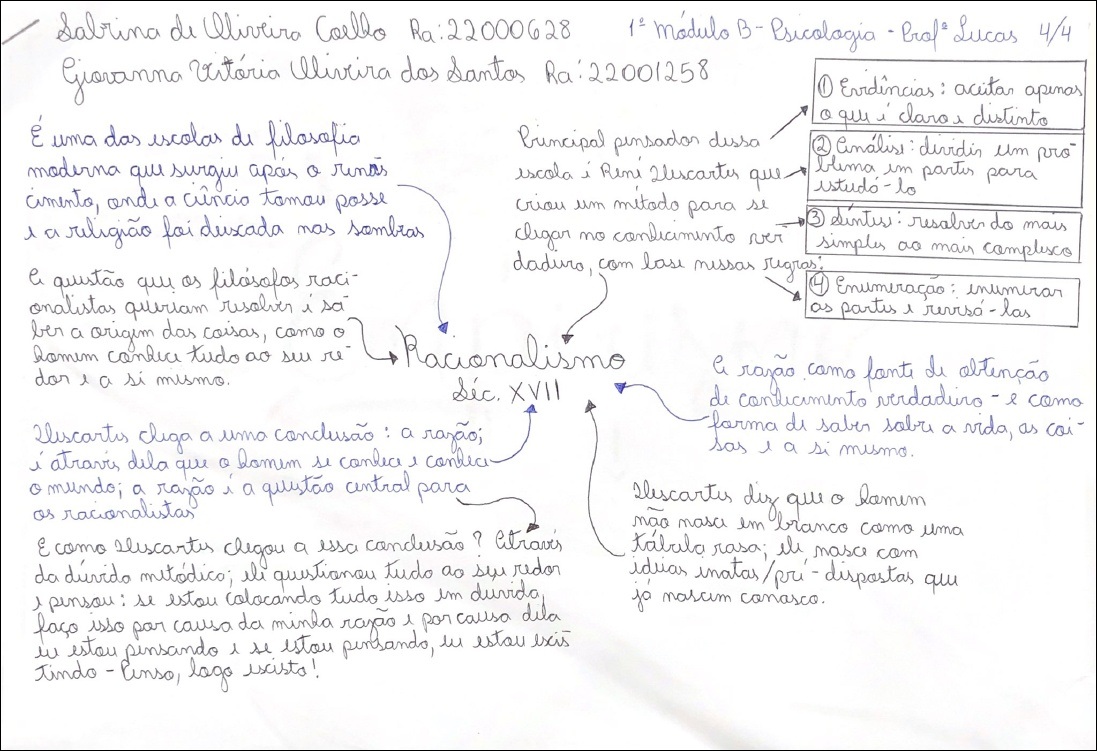 Sabrina de Oliveira Coelho Ra: 22000628
1º Módulo B - Psicologia - Profº Lucas 4/4
Giovanna Vitória Oliveira dos Santos Ra: 22001258
É uma das escolas de filosofia
moderna que surgiu após o renas
cimento, onde a ciência tomou posse
e a religião foi deixada nas sombras
Principal pensador dessa
escola é René Descartes que
criou um método para se
chegar no conhecimento ver
dadeiro, com base nessas regras:
① Evidências: aceitar apenas
o que é claro e distinto
② Análise: dividir um pro-
blema em partes para
estudá-lo
③ Síntese: resolver do mais
simples ao mais complexo
④ Enumeração: enumerar
as partes e revisá-las
A questão que os filósofos raci-
onalistas queriam resolver é sa
ber a origem das coisas, como o
homem conhece tudo ao seu re-
dor e a si mesmo.
Racionalismo
Séc. XVII
A razão como fonte de obtenção
de conhecimento verdadeiro - e como
forma de saber sobre a vida, as coi-
sas e a si mesmo.
Descartes chega a uma conclusão: a razão;
é através dela que o homem se conhece e conhece
o mundo; a razão é a questão central para
os racionalistas
Descartes diz que o homem
não nasce em branco como uma
tábula rasa; ele nasce com
ideias inatas/pré-dispostas que
já nascem conosco.
E como Descartes chegou a essa conclusão? Através
da dúvida metódica; ele questionou tudo ao seu redor
e pensou: se estou colocando tudo isso em duvida,
faço isso por causa da minha razão e por causa dela
eu estou pensando e se estou pensando, eu estou exis
tindo - Penso, logo existo!